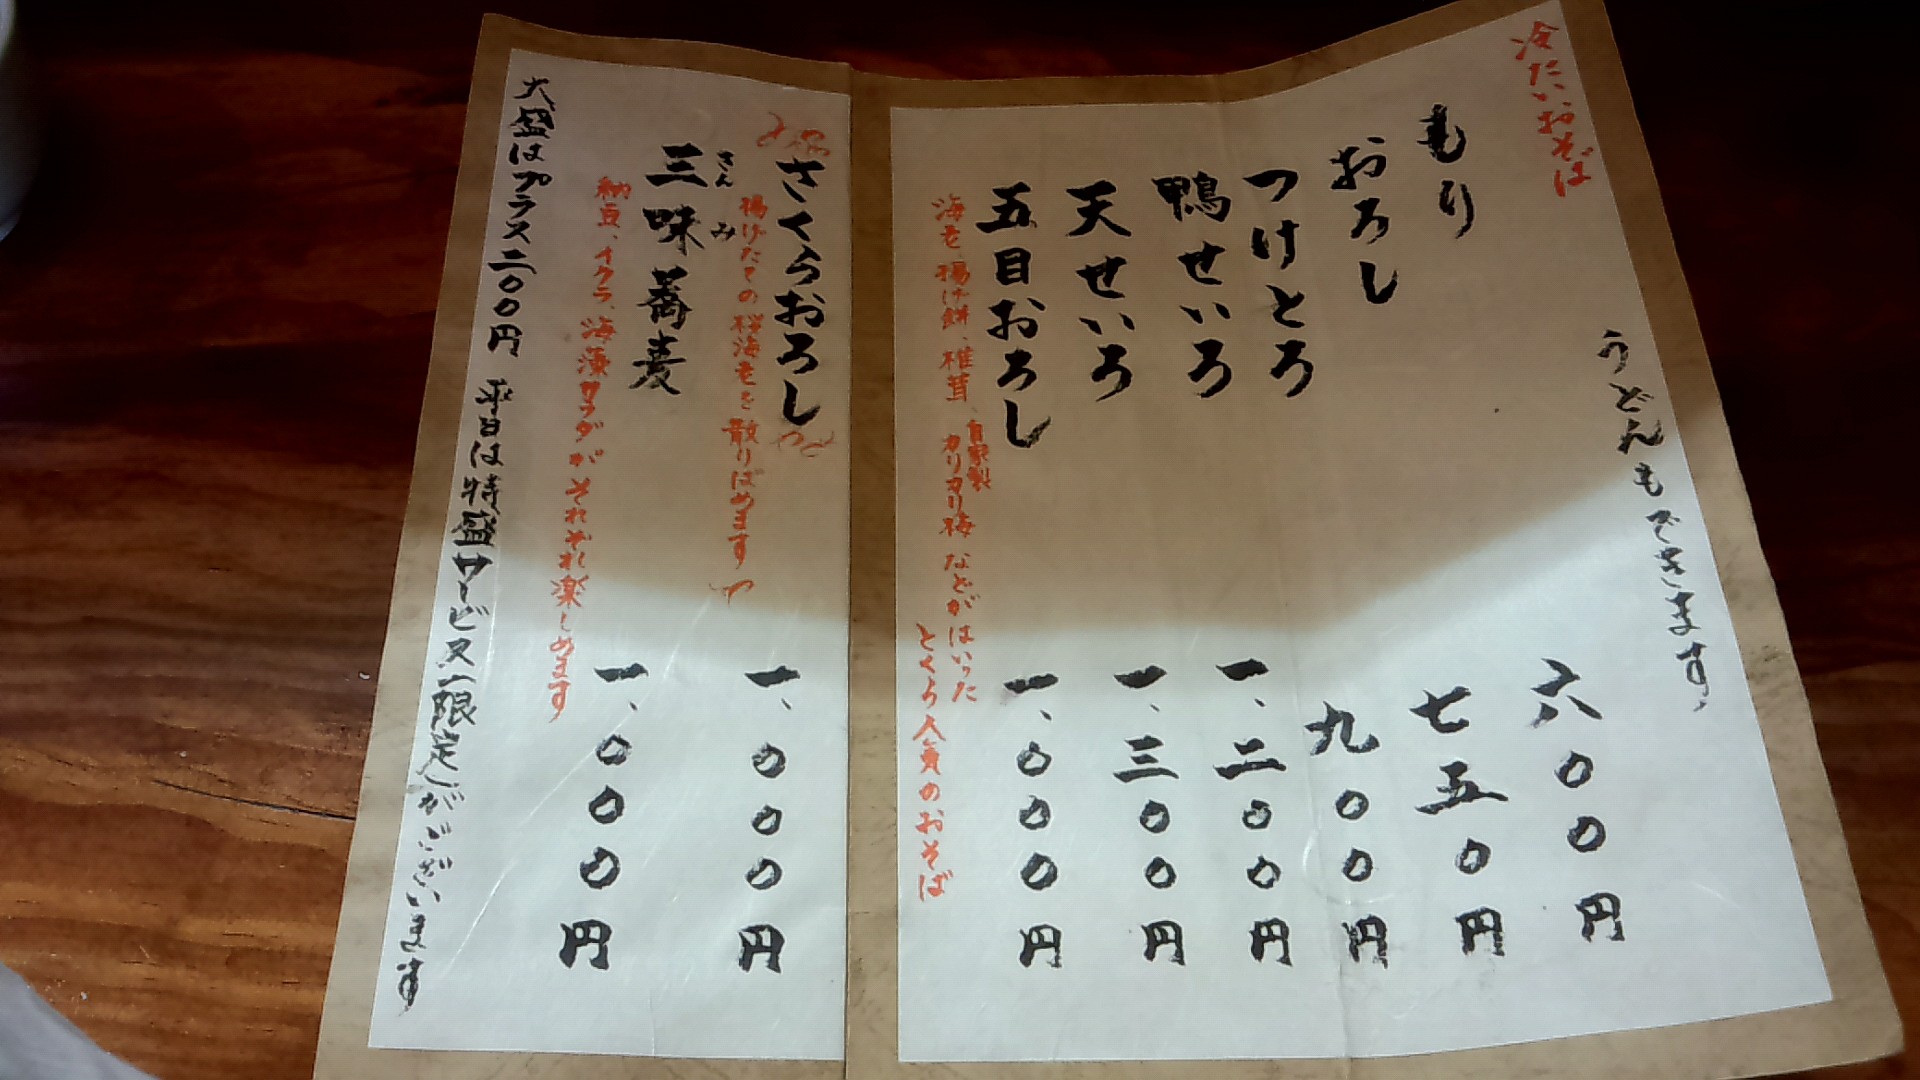 冷たいおそば
うどんもできます。
もり 六〇〇円
おろし 七五〇円
つけとろ 九〇〇円
鴨せいろ 一、二〇〇円
天せいろ 一、三〇〇円
五目おろし 一、〇〇〇円
海老、揚げ餅、椎茸、自家製カリカリ梅などがはいった
とくら人気のおそば
さくらおろし 一、〇〇〇円
揚げたての桜海老を散りばめます
三味蕎麦 一、〇〇〇円
さんみ
納豆、イクラ、海藻サラダがそれぞれ楽しめます
大盛はプラス二〇〇円 平日は特盛サービス限定がございます